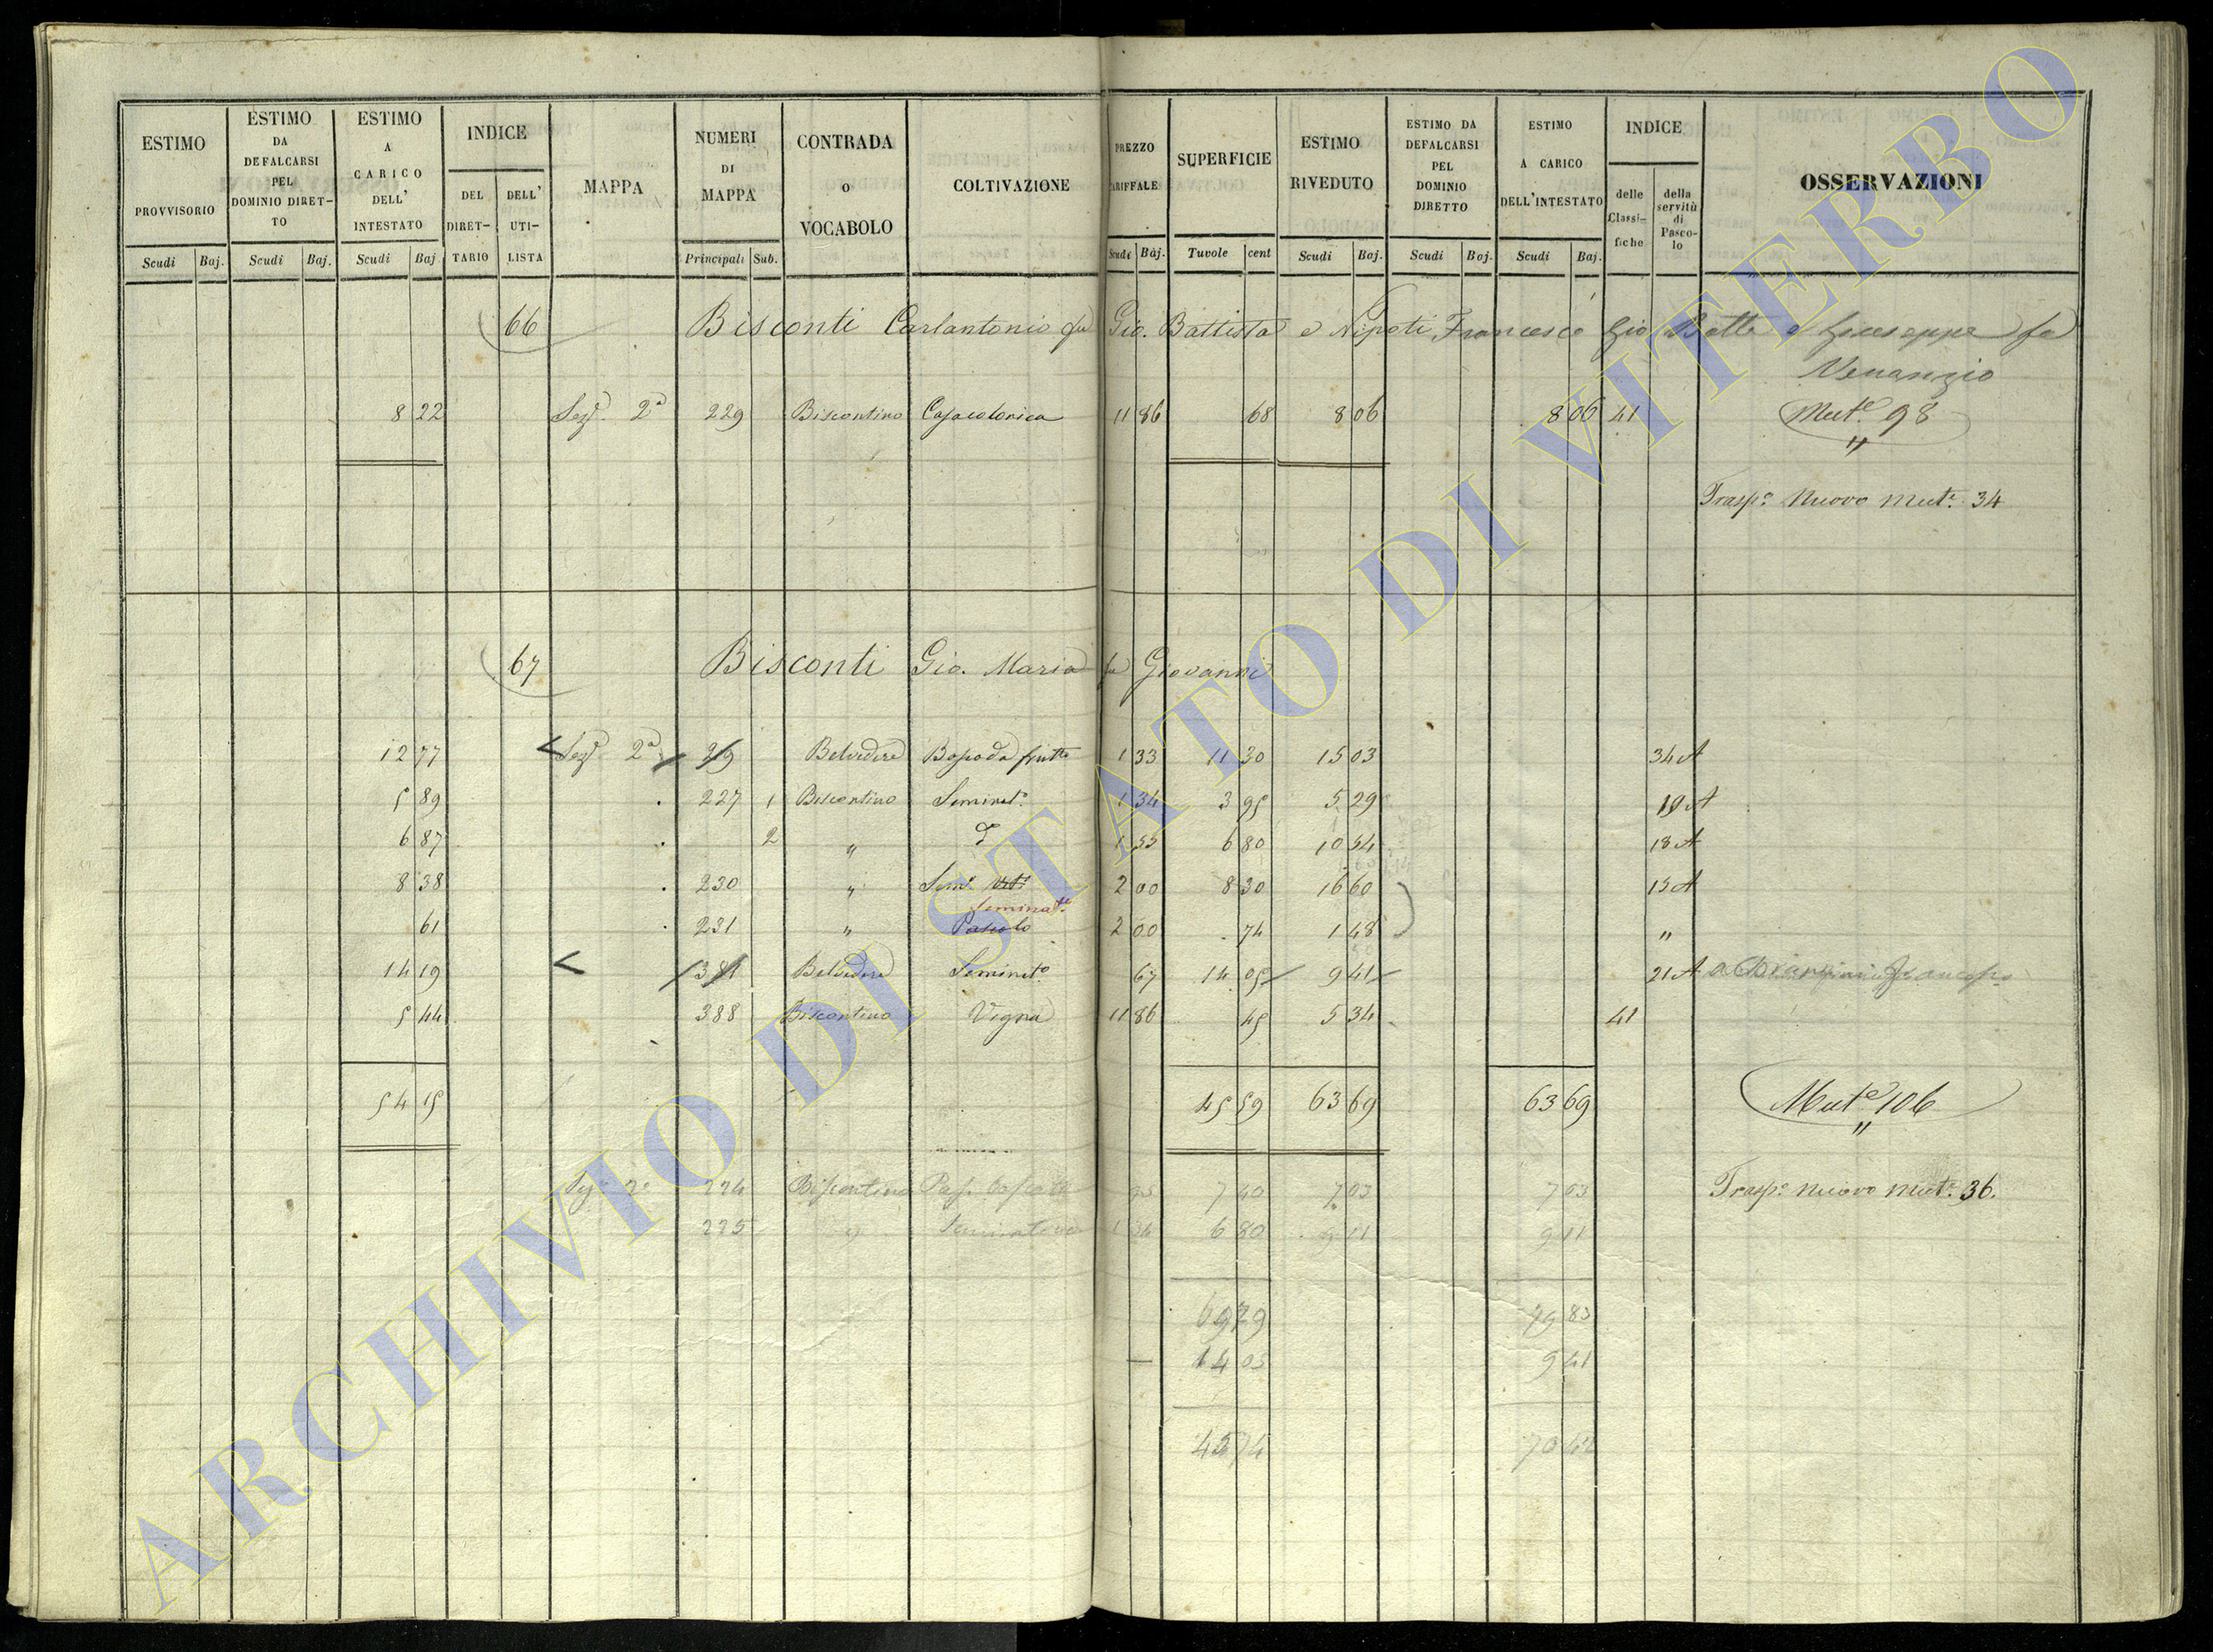 ESTIMO PROVVISORIO Scudi Baj.
ESTIMO DA DEFALCARSI PEL DOMINIO DIRET-TO Scudi Baj.
ESTIMO A CARICO DELL' INTESTATO Scudi Baj
INDICE DEL DIRET-TARIO DELL' UTI-LISTA
MAPPA
NUMERI DI MAPPA Principali Sub.
CONTRADA O VOCABOLO
COLTIVAZIONE
PREZZO TARIFFALE Scudi Baj.
SUPERFICIE Tavole cent
ESTIMO RIVEDUTO Scudi Baj.
ESTIMO DA DEFALCARSI PEL DOMINIO DIRETTO Scudi Baj.
ESTIMO A CARICO DELL'INTESTATO Scudi Baj.
INDICE delle Classi-fiche della servitù di Pasco-lo
OSSERVAZIONI
66 Bisconti Carlantonio fu Gio. Battista e Nipoti Francesco Gio Batta e Giuseppe fu
Venanzio
8 22 Sez.e 2a 229 Biscontino Casa colonica 11 86 68 8 06 8 06 41 Mut.e 98
"
Trasp.o nuovo mut.e 34
67 Bisconti Gio. Maria fu Giovanni
12 77 Sez.e 2a 219 Belvedere Bosco da frutto 1 33 11 30 15 03 34 A
5 89 227 1 Biscontino Seminat.o 1 34 3 95 5 29 19 A
6 87 2 " 1 55 6 80 10 54 18 A
8 38 230 " Sem.o Vit.o 2 00 8 30 16 60 15 A
Seminat.o
61 231 " Pascolo 2 00 74 1 48 "
14 19 381 Belvedere Seminat.o 67 14 05 9 41 21 A
5 44 388 Biscontino Vigna 11 86 45 5 34 41
54 15 45 59 63 69 63 69 Mut.e 106
"
Sez.e 2a 224 Biscontino 95 7 40 7 03 7 03 Trasp.o nuovo mut.e 36.
225 " Seminativo 1 34 6 80 9 11 9 11
69 79 79 83
14 05 9 41
45 74 70 42
ARCHIVIO DI STATO DI VITERBO